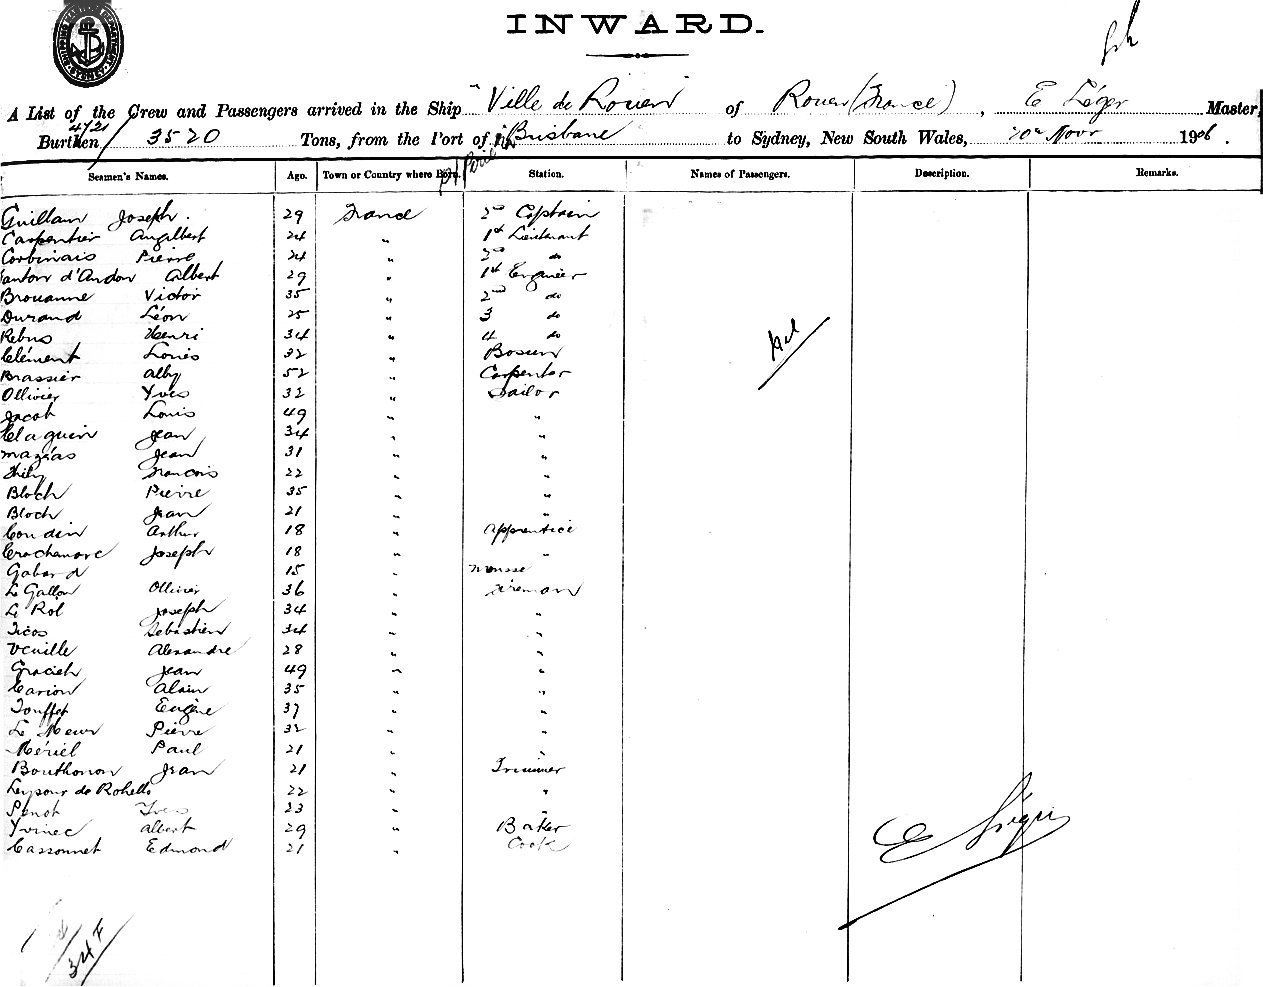 INWARD.
A List of the Crew and Passengers arrived in the Ship "Ville de Rouen of Rouen (France), E Léger Master,
4721
Burthen 3520 Tons, from the Port of Brisbane to Sydney, New South Wales, Novr 1906.
Seamen's Names. Age. Town or Country where Born. Station. Names of Passengers. Description. Remarks.
Guillam Joseph. 29 France 2nd Captain
Carpentier Angilbert 24 " 1st Lieutenant
Corbinais Pierre 24 " 2nd do
d'Andon Albert 29 " 1st Engineer
Brouanne Victor 35 " 2nd do
Durand Léon 25 " 3 do
Rebus Henri 34 " 4 do
Clément Louis 32 " Bosun
Brassier Alby 52 " Carpenter
Ollivier Yves 32 " Sailor
Jacob Louis 49 " "
Claquin Jean 34 " "
Mazéas Jean 31 " "
Thily Francois 22 " "
Bloch Pierre 35 " "
Bloch Jean 21 " "
Coudin Arthur 18 " Apprentice
Joseph 18 " "
Gabard 15 " Mousse
Le Gallou Ollivier 36 " Fireman
Le Rol Joseph 34 " "
Ticos Sebastien 34 " "
Veuille Alexandre 28 " "
Jean 49 " "
Carion Alain 35 " "
Touffet Eugène 37 " "
Le Meur Pierre 32 " "
Mériel Paul 21 " "
Bouthonon Jean 21 " Trimmer
de 22 " "
Penot Yves 23 " "
Yvinec Albert 29 " Baker
Cassonnet Edmond 21 " Cook
Nil
E Léger
34 F